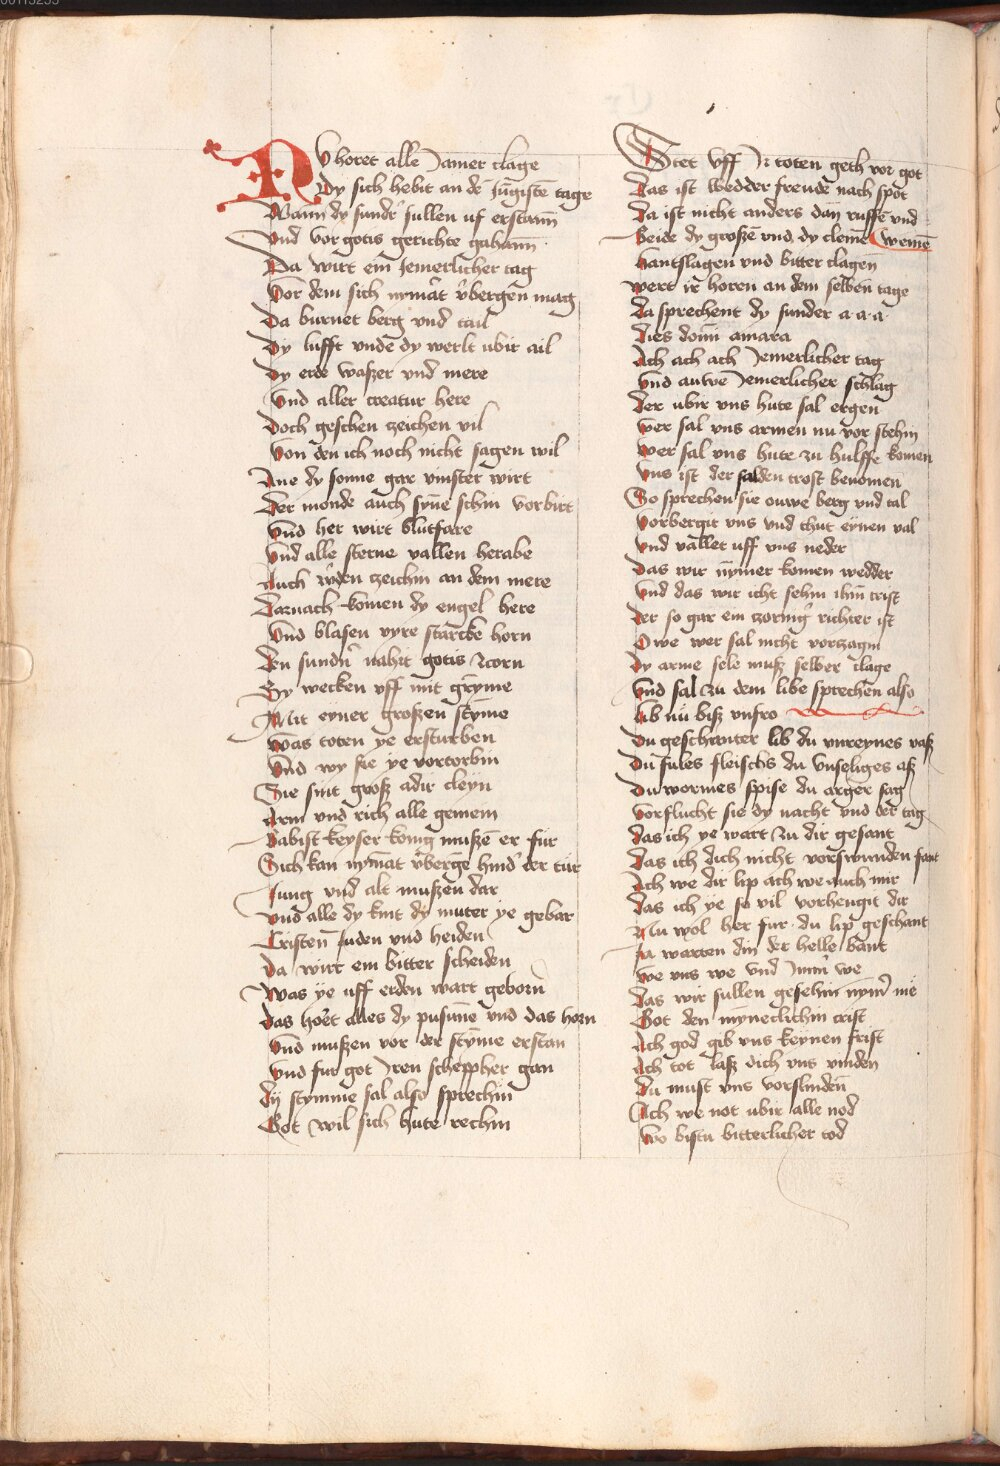 NV horet alle Jamer clage
Dy sich hebit an dē Jūgistē tage
Wann dy sundʾ sullen uf erstann
Vnd vor gotis gerichte gahann
Da wirt ein Jemerlicher tag
Vor dem sich nymāt vʾbergen mag
Da burnet berg vnd tail
Dy lufft vnde dy werlt ubir ail
Dy erde waszer vnd mere
Vnd aller creatur here
Doch geschen zceichen vil
Von den ich noch nicht sagen wil
Ane dy sonne gar vinster wirt
Der monde auch syne schin vorbirt
Vnd her wirt blutfare
Vnd alle sterne vallen herabe
Auch wʾden zceichin an dem mere
Darnach komen dy engel here
Vnd blasen vyre starcke horn
Den sundʾn nahit gotis zcorn
Sy wecken uff mit gryme
Mit eyner groszen styme
Was toten ye ersturben
Vnd wy sie ye vortorbin
Sie sint grosz adir cleyn
Arm vnd rich alle gemein
Babist keyser konig muszē er fur
Sich kan nymāt vʾbergē hindʾ der tür
Jung vnd alt muszen dar
Vnd alle dy kint dy muter ye gebar
Cristen Juden vnd heiden
Da wirt ein bitter scheiden
Was ye uff erden wart geborn
Das hoʾet alles dy pusune vnd das horn
Vnd muszen vor der styme erstan
Vnd fur got Jren schepper gan
Dy stymme sal also sprechin
Got wil sich hute rechin
Stet vff Jr toten geth vor got
Das ist wedder freude nach spot
Da ist nicht anders dan ruffē vnd
Beide dy groszē vnd dy cleinē weinē
Hantslagen vnd bitter clagen
Wert ir horen an dem selben tage
Da sprechent dy sunder a·a·a·
Dies domī amara
Ach ach ach Jemerlicher tag
Vnd auwe Jemerlicher schlag
Der ubir vns hute sal ergen
Wer sal vns armen nu vor stehin
Wer sal vns hute zu hulffe komen
Vns ist der salden trost benomen
So sprechen sie ouwe berg vnd tal
Vorbergit vns vnd thut eynen val
Vnd vallet uff vns neder
Das wir nymer komen wedder
Vnd das wir icht sehin ihm crist
Der so gar ein zornigʾ richter ist
Owe wer sal nicht vorzagin
Dy arme sele musz selber clage
Vnd sal zu dem libe sprechen also
Lib nü bisz vnfro
Du geschanter lib du vnreynes vasz
Du fules fleischs du vnseliges asz
Du wormes spise du arger sag
Vorflucht sie dy nacht vnd der tag
Das ich ye wart zu dir gesant
Das ich dich nicht vorswunden fant
Ach we dir lip ach we auch mir
Das ich ye so vil vorhengit dir
Nu wol her fur du lip geschant
Ja warten din der helle bant
We vns we vnd Jmʾ we
Das wir sullen gesehin nymʾ me
Got den myneclichin crist
Ach god gib vns keynen frist
Ach tot lasz dich vns vinden
Du must vns vorslinden
Ach we not ubir alle nod
Wo bistu bitterlicher tod